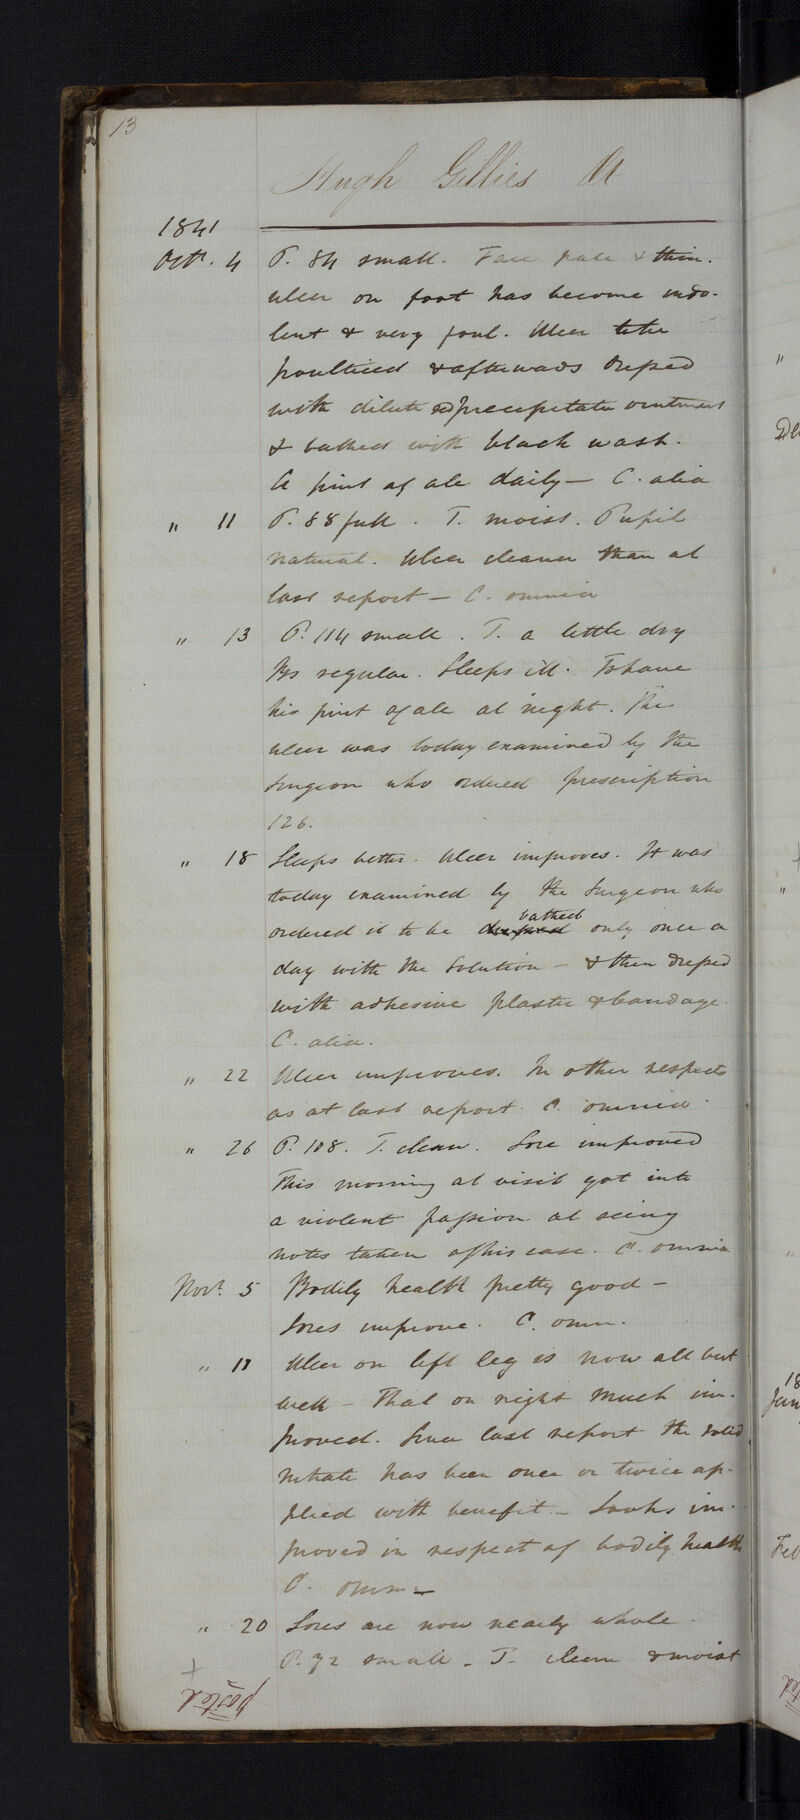 13
Hugh Gillies
1841
Octr. 4 P. 84 small. Face pale & thin.
Ulcer on foot has become indo-
lent & very foul. Ulcer to be
poulticed & afterwads dressed
with dilute red precipitate ointment
& bathed with black wash.
A pint of ale daily — C. alia
" 11 P. 88 full. T. moist. Pupil
natural. Ulcer cleaner than at
last report — C. omnia
" 13 P. 114 small. T. a little dry
Bs regular. Sleeps ill. To have
his pint of ale at night. The
ulcer was today examined by the
Surgeon who ordered prescription
126.
" 18 Sleeps better. Ulcer improves. It was
today examined by the Surgeon who
bathed
ordered it to be dressed only once a
day with the Solution — & then dressed
with adhesive plaster & bandage.
C. alia.
" 22 Ulcer improves. In other respects
as at last report. C. omnia.
" 26 P. 108. T. clean. Sore improved
This morning at visit got into
a violent passion at seeing
notes taken of his case. C. omnia
Novr. 5 Bodily health pretty good —
Sores improve. C. omn.
" 11 Ulcer on left leg is now all but
well — That on right much im-
proved. Since last report the solid
nitrate has been once or twice ap-
plied with benefit — Looks im-
proved in respect of bodily health
C. omn —
" 20 Sores are now nearly whole.
P. 72 small — T. clean & moist
+
posted